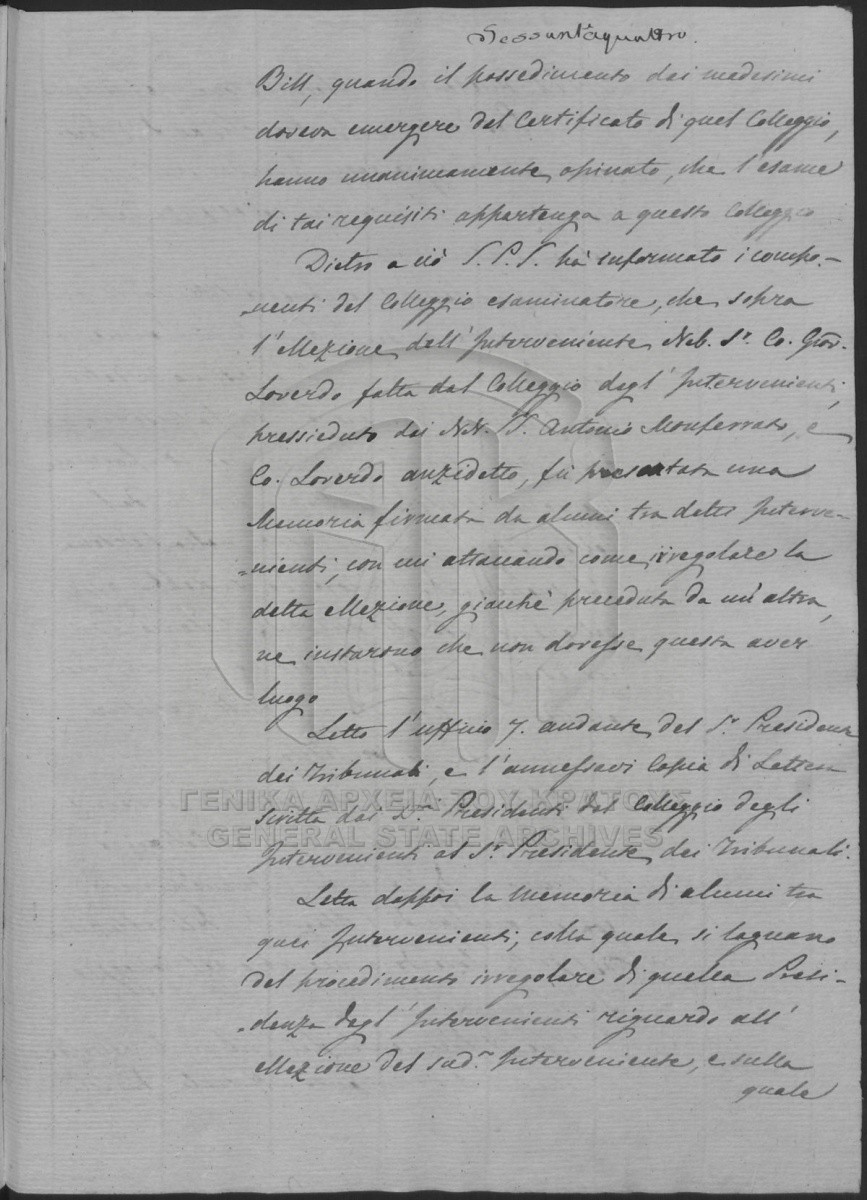 Sessantaquattro.
Bill, quando il possedimento dei medesimi
doveva emergere del Certificato di quel Colleggio,
hanno unanimamente opinato, che l'esame
di tai requisiti appartenga a questo Colleggio
Dietro a ciò S. P. S. hà informato i compo-
-nenti del Colleggio esaminatore, che sopra
l'Elezione dell'Interveniente Nob. Sr. Co. Giov.
Loverdo fatta dal Colleggio degl'Intervenienti,
pressieduto dai NN. SS. Antonio Monferrato, e
Co. Loverdo anzidetto, fù presentata una
Memoria firmata da alcuni tra detti Interve-
-nienti, con cui attaccando come irregolare la
detta Elezione, giacchè preceduta da un'altra,
ne instarono che non dovesse questa aver
luogo
Letto l'ufficio 7. andante del Sr. Presidente
dei Tribunali, e l'annessavi Copia di Lettera
scritta dai Presidenti del Colleggio degli
Intervenienti al Sr. Presidente dei Tribunali.
Letta dappoi la memoria di alcuni tra
quei Intervenienti, colla quale si lagnano
del procedimento irregolare di quella Presi-
-denza degl'Intervenienti riguardo all'
Elezione del sudo. Interveniente, e sulla
quale
ΓΕΝΙΚΑ ΑΡΧΕΙΑ ΤΟΥ ΚΡΑΤΟΥΣ
GENERAL STATE ARCHIVES